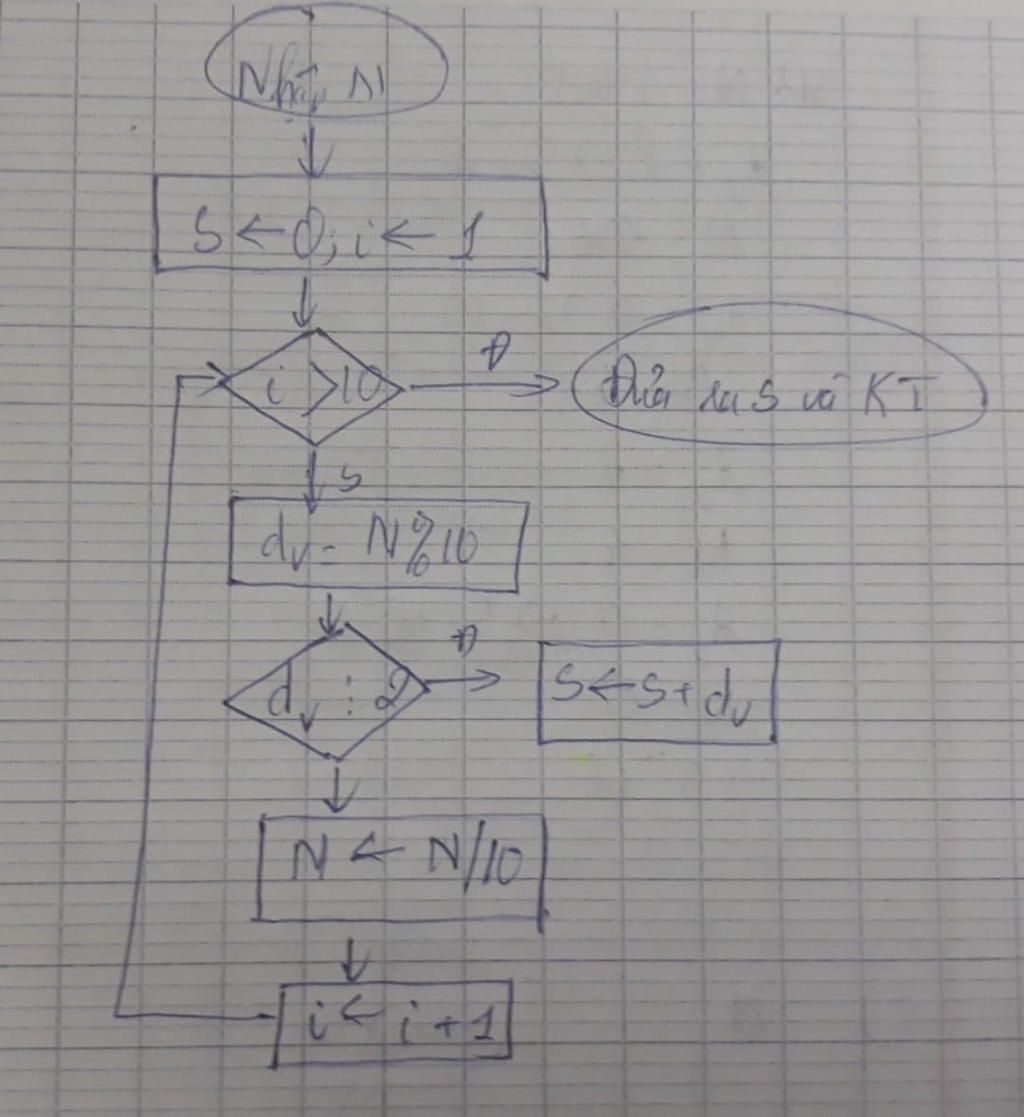 Nhập N
S ← 0; i ← 1
i > 10
Đ
Đưa ra S và KT
S
dv = N % 10
dv ⋮ 2
Đ
S ← S + dv
N ← N/10
i ← i + 1